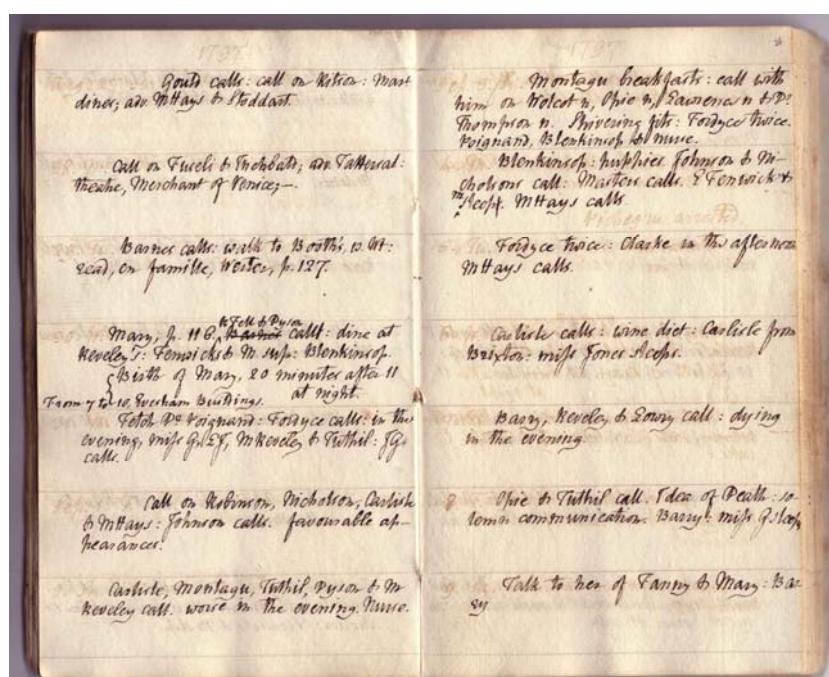 1797
Gould calls: call on Ritson: Mart
dines; adv. MHays & Stoddart.
Call on Fuseli & Inchbald; adv. Tattersal:
theatre, Merchant of Venice;—.
Barnes calls: walk to Booth's, w. Wt:
read, en famille, Werter, p. 127.
te Fell & Dyson
Mary, p. 116. Barnes call: dine at
Reveley's: Fenwicks & M. sup: Blenkinsop.
Birth of Mary, 20 minutes after 11
at night.
From 7 to 10, Evesham Buildings.
Fetch Dr Poignand: Fordyce calls: in the
evening, miss G, EF, MReveley & Tuthil: JG
calls.
Call on Robinson, Nicholson, Carlisle
& MHays: Johnson calls. favourable ap-
pearances.
Carlisle, Montagu, Tuthil, Dyson & M
Reveley call. worse in the evening. Nurse.
1797
Montagu breakfasts: call with
him on Wolcot n, Opie n, Lawrence n & Dr
Thompson n. Shivering fits: Fordyce twice.
Poignand, Blenkinsop & nurse.
Blenkinsop: puppies. Johnson & Ni-
cholsons call: Masters calls. E Fenwick &
M sleep. MHays calls.
Pichegru arrested.
Fordyce twice: Clarke in the afternoon
MHays calls.
Carlisle calls: wine diet: Carlisle from
Brixton: miss Jones sleeps.
Barry, Reveley & Lowry call: dying
in the evening.
8 Opie & Tuthil call. Idea of Death: so-
lemn communication. Barry: miss G sleeps
Talk to her of Fanny & Mary: Bar
ry